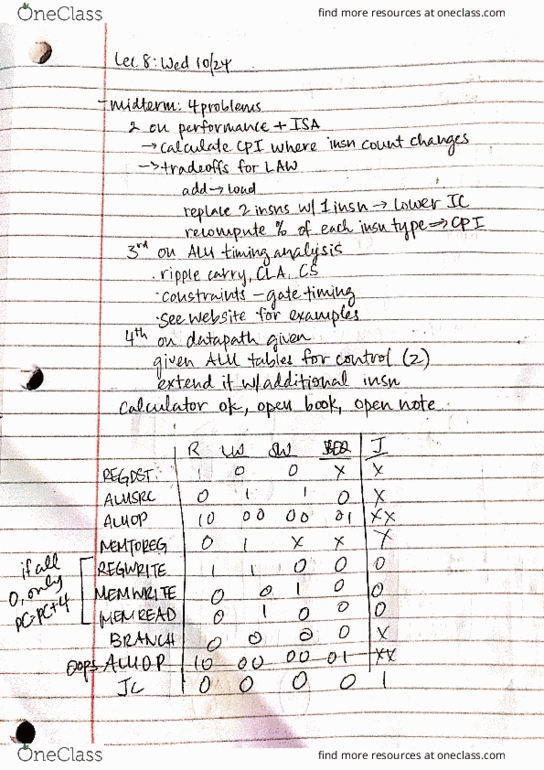 OneClass find more resources at oneclass.com
Lec 8: Wed 10/24
- midterm: 4 problems
2 on performance + ISA
→ calculate CPI where insn count changes
-> tradeoffs for LAW
add → load
replace 2 insns w/ 1 insn → lower IC
recompute % of each insn type ⇒ CPI
3rd on ALU timing analysis
· ripple carry, CLA, CS
· constraints - gate timing
· see website for examples
4th on datapath given
given ALU tables for control (2)
extend it w/ additional insn
calculator ok, open book, open note
R LW SW BEQ J
REGDST 1 0 0 X X
ALUSRC 0 1 1 0 X
ALUOP 10 00 00 01 XX
MEMTOREG 0 1 X X X
if all 0, only PC=PC+4
REGWRITE 1 1 0 0 0
MEMWRITE 0 0 1 0 0
MEMREAD 0 1 0 0 0
BRANCH 0 0 0 0 X
oops ALUOP 10 00 00 01 XX
JC 0 0 0 0 1
OneClass find more resources at oneclass.com